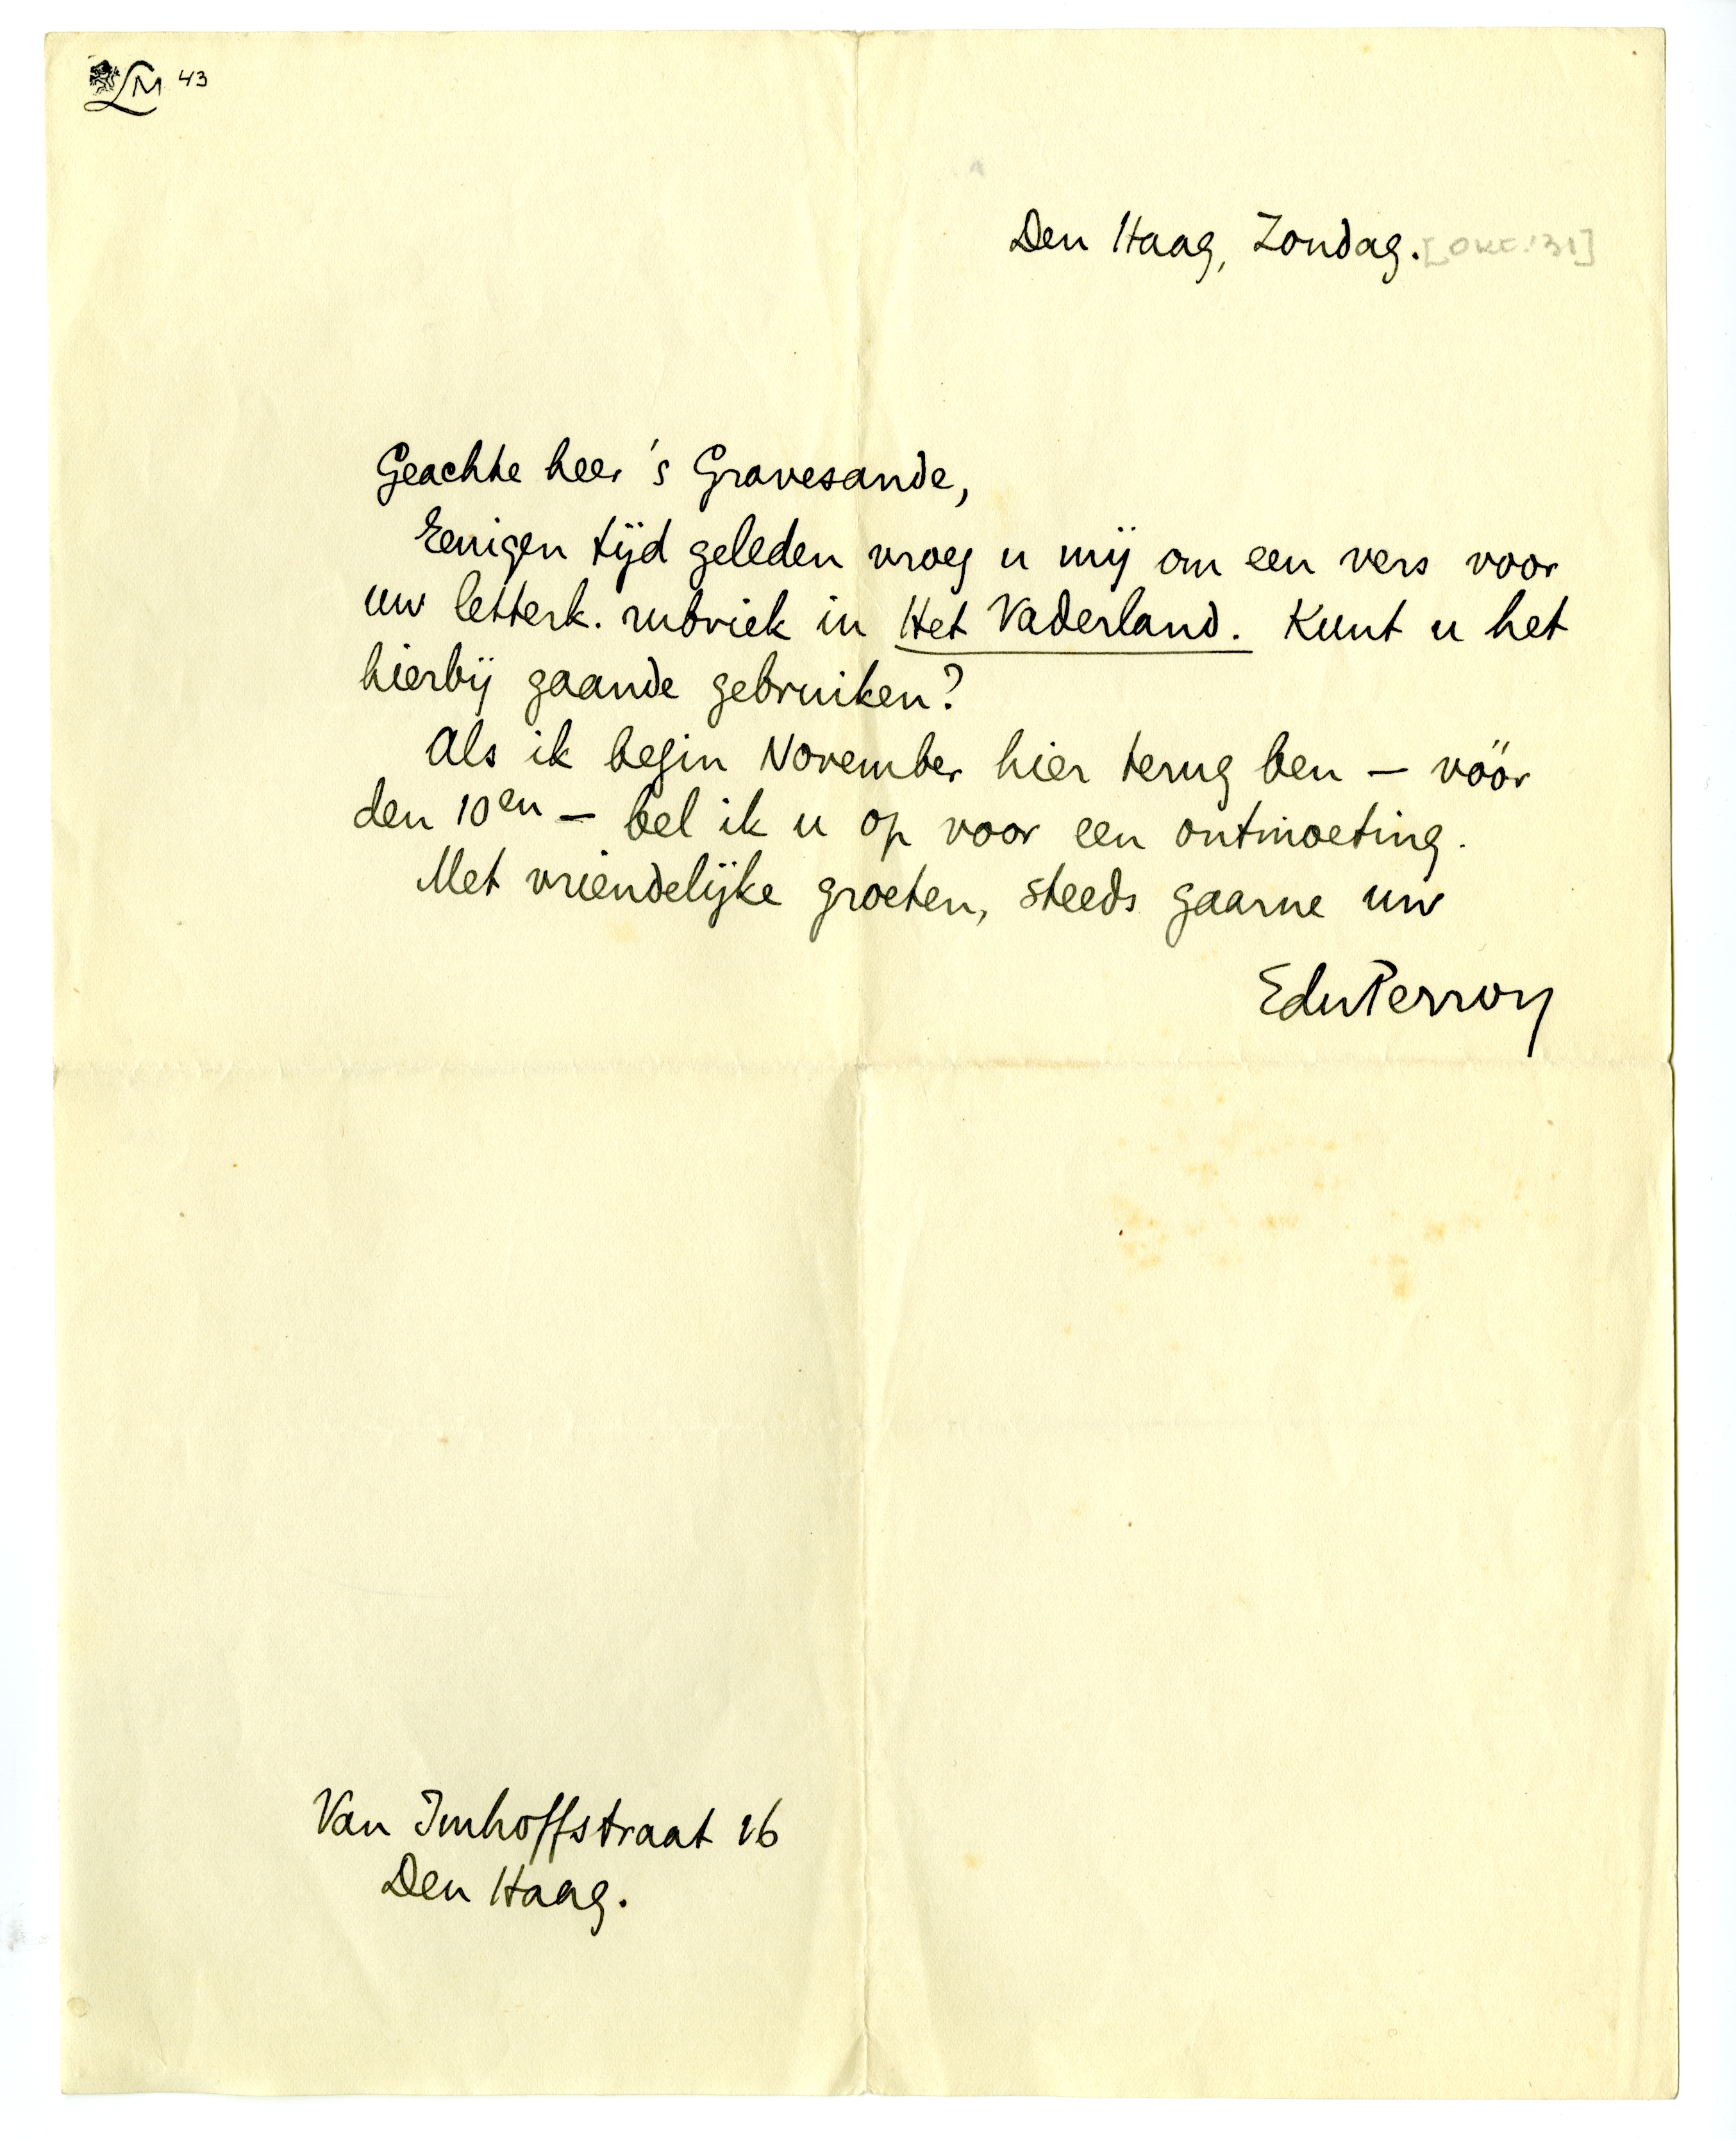 LM 43
Den Haag, Zondag. [OKT. '31]
Geachte heer 's Gravesande,
Eenigen tijd geleden vroeg u mij om een vers voor
uw letterk. rubriek in Het Vaderland. Kunt u het
hierbij gaande gebruiken?
Als ik begin November hier terug ben — vóór
den 10en — bel ik u op voor een ontmoeting.
Met vriendelijke groeten, steeds gaarne uw
EduPerron
Van Imhoffstraat 16
Den Haag.